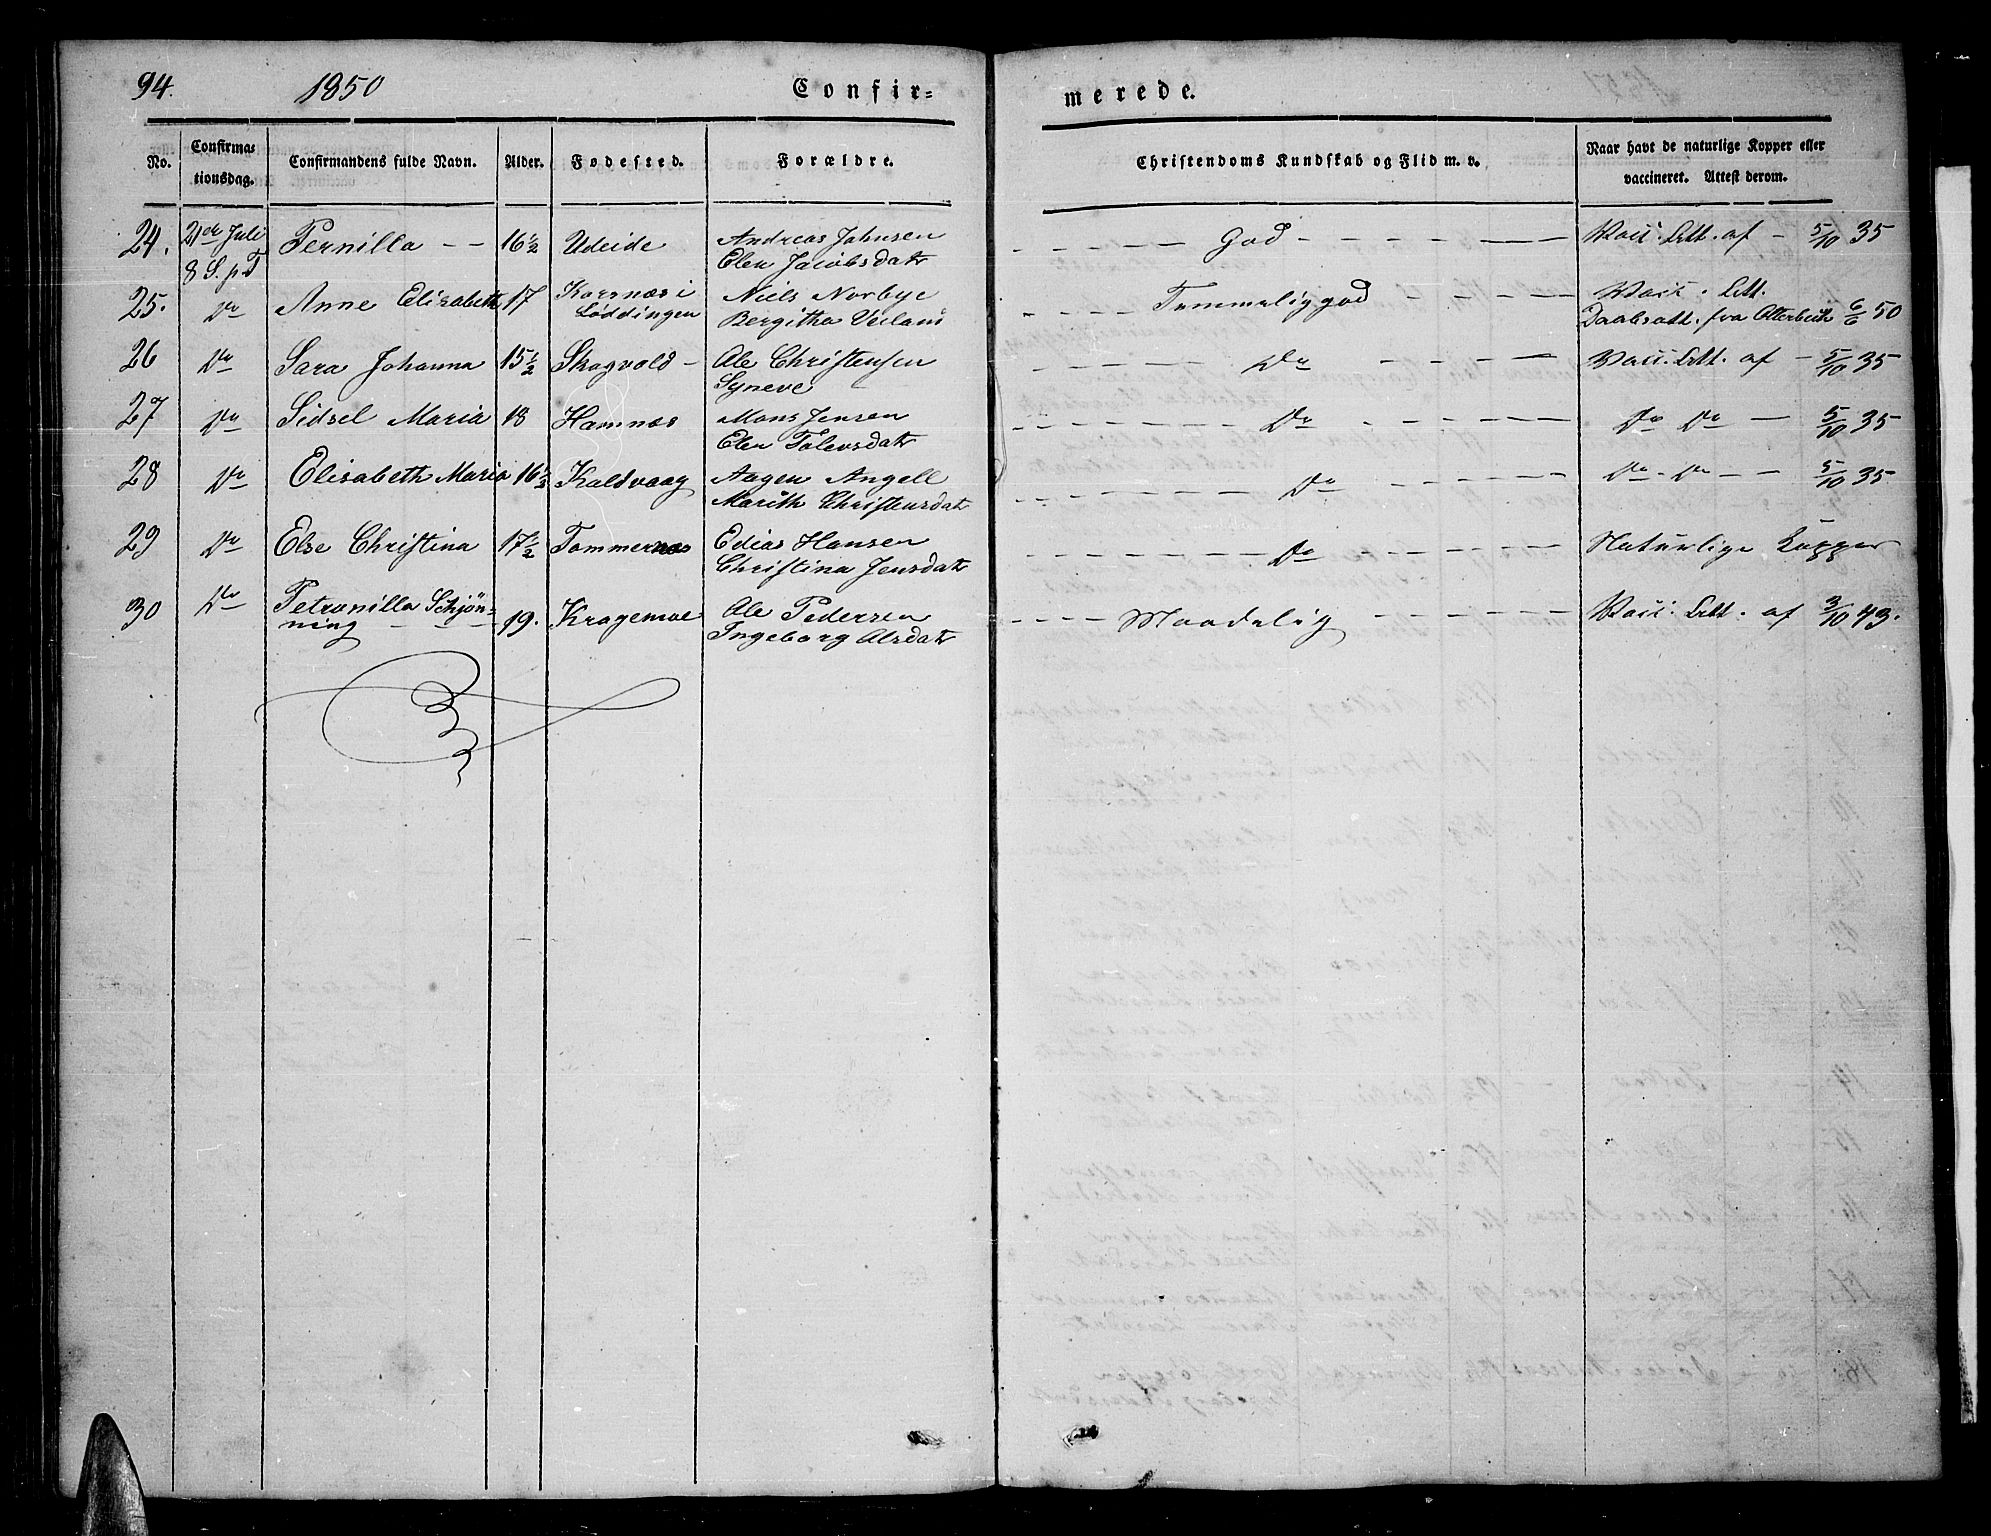 94. 1850 Confir=
merede.
No. Confirma= tionsdag. Confirmandens fulde Navn. Alder. Fødested. Forældre. Christendoms Kundskab og Flid m. v. Naar havt de naturlige Kopper eller vaccineret. Attest derom.
24. 21de Juli Pernilla - - 16 1/2 Udeide Andreas Johnsen - - - - God - - - - Vacc. Att. af - 5/10 35
8 S. p. T Elen Jacobsdatr
25. Do Anne Elisabeth 17 Korsnæs i Niels Norbye - - - - Temmelig god - - - - Vacc. Att.
Löddingen Bergitha Daabsatt. fra Otterbeck 6/6 50
26 Do Sara Johanna 15 1/2 Skogvold - Ole Christensen - - - - Do - - - - Vacc. Att. af - 5/10 35
Syneve
27 Do Sidsel Maria 18 Hamnæs Mons Jensen - - - - Do - - - - Do Do - 5/10 35
Elen Tolevsdatr
28 Do Elisabeth Maria 16 1/2 Kaldvaag Aagen Angell - - - - Do - - - - Do - Do - - 5/10 35
Marith Christensdatr
29 Do Else Christina 17 1/2 Tommernæs Edias Hansen - - - - Do - - - - Naturlige Kopper
Christina Jensdatr
30 Do Petronilla Schjön- 19. Kragemoe Ole Pedersen - - - - Maadelig - - - - Vacc. Att. af 3/10 43.
ning - - - Ingeborg Olsdatr